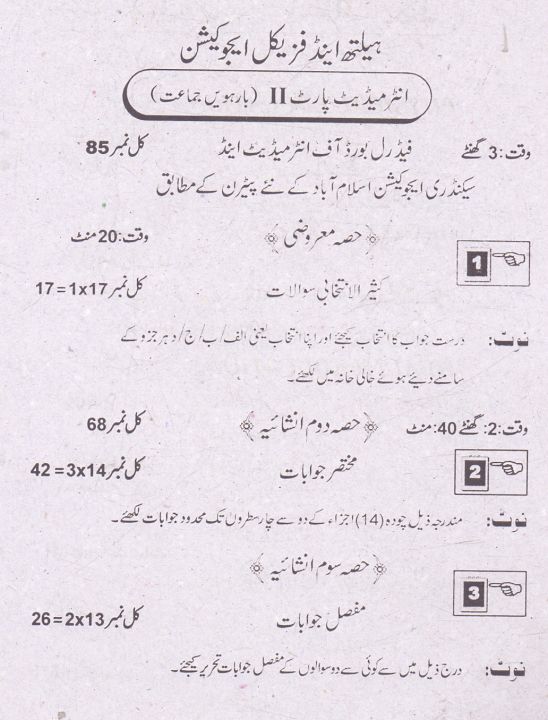 ہیلتھ اینڈ فزیکل ایجوکیشن
انٹرمیڈیٹ پارٹ II (بارھویں جماعت)
وقت: 3 گھنٹے فیڈرل بورڈ آف انٹرمیڈیٹ اینڈ کل نمبر 85
سیکنڈری ایجوکیشن اسلام آباد کے نئے پیٹرن کے مطابق
حصہ معروضی وقت: 20 منٹ
1
کثیر الانتخابی سوالات کل نمبر 17x1=17
نوٹ: درست جواب کا انتخاب کیجیئے اور اپنا انتخاب یعنی الف/ب/ج/د ہر جزو کے
سامنے دیئے ہوئے خالی خانہ میں لکھئے۔
وقت: 2 گھنٹے: 40 منٹ حصہ دوم انشائیہ کل نمبر 68
2
مختصر جوابات کل نمبر 14x3=42
نوٹ: مندرجہ ذیل چودہ (14) اجزاء کے دو سے چار سطروں تک محدود جوابات لکھئے۔
حصہ سوم انشائیہ
3
مفصل جوابات کل نمبر 13x2=26
نوٹ: درج ذیل میں سے کوئی سے دو سوالوں کے مفصل جوابات تحریر کیجئے۔